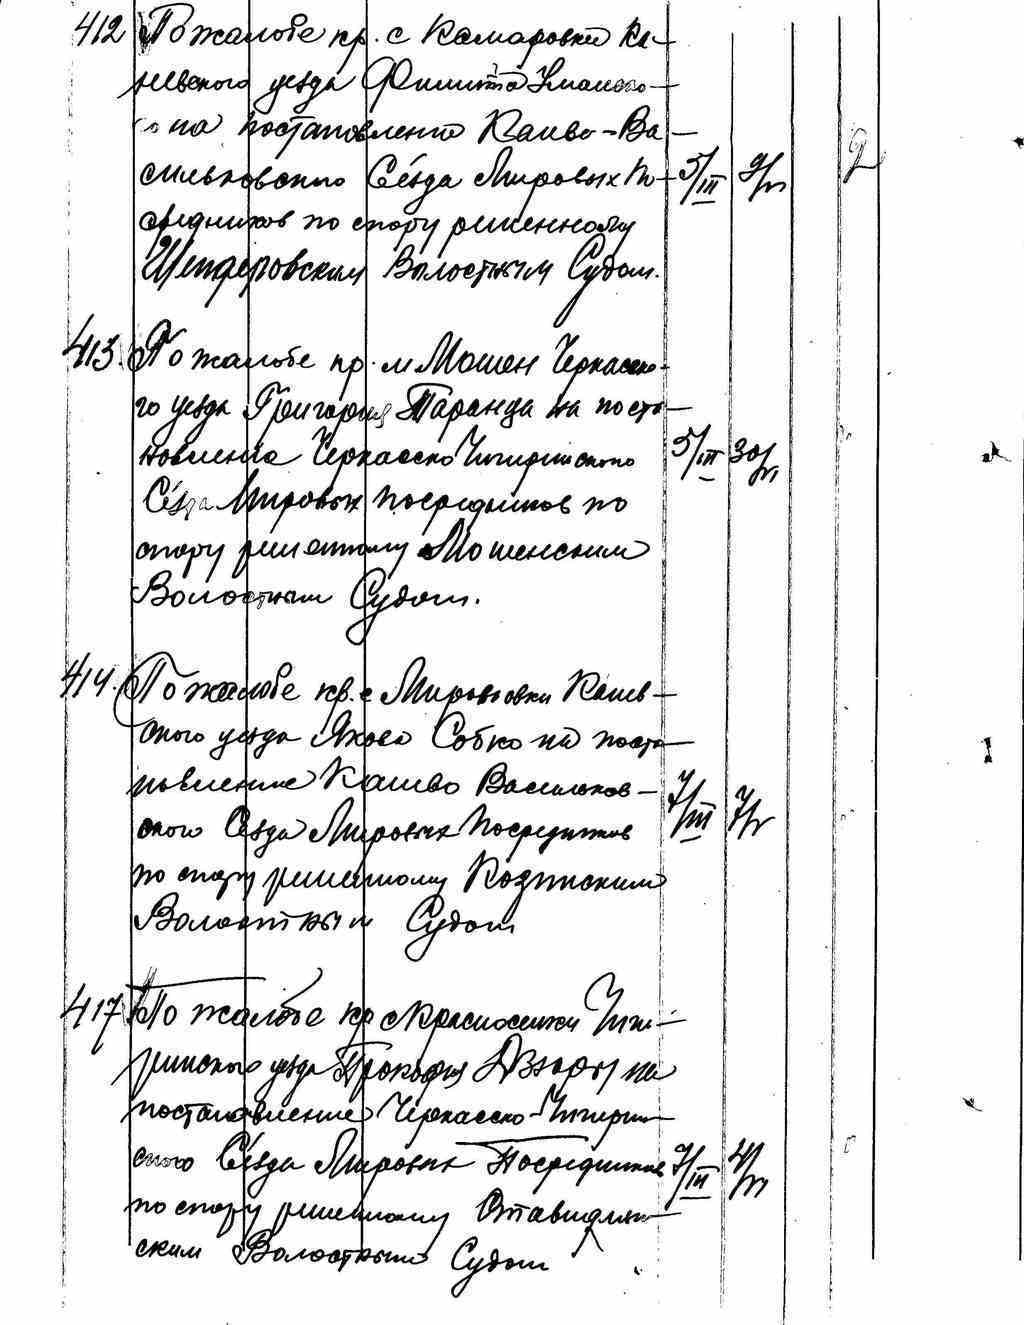 412 По жалобе кр. с Комаровки Ка-
невского уезда Филиппа
на постановление Каневo-Ва-
сильковского Съезда Мировых По-
средников по спору решенному 5/III 9/VI 2
Шендеровским Волостным Судом.
413. По жалобе кр. м Мошен Черкасско-
го уезда Григория Таранда на поста-
новление Черкасско Чигиринского 5/III 30/VI
Съезда Мировых Посредников по
спору решенному Мошенским
Волостным Судом.
414. По жалобе кр. с Мироновки Канев-
ского уезда Якова Собко на поста-
новление Канево Васильков-
ского Съезда Мировых Посредников 7/III 7/V
по спору решенному Козинским
Волостным Судом
417 По жалобе кр с Красноселки Чиги-
ринского уезда Прокофия Дзюры на
постановление Черкасско-Чигирин-
ского Съезда Мировых Посредников 7/III 4/VI
по спору решенному
ским Волостным Судом